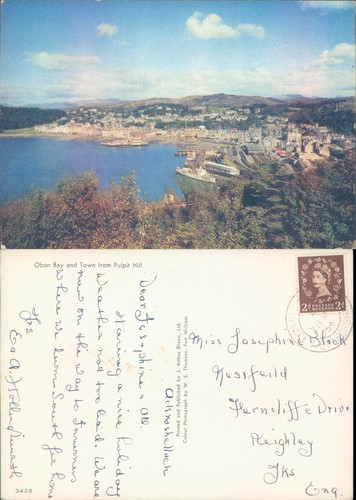 Oban Bay and Town from Pulpit Hill.
Dear Josephine & All
Having a nice holiday
Weather not too bad. We are
now on the way to Inverness
Where we turn South for home
Yks
3428
Printed and Published by J. Arthur Dixon, Ltd.
Colour Photograph by W. S. Thomson, Fort William
2d 2d
POSTAGE
REVENUE
Miss Josephine Black
Nessfield
Ferncliffe Drive
Keighley
Yks
Eng